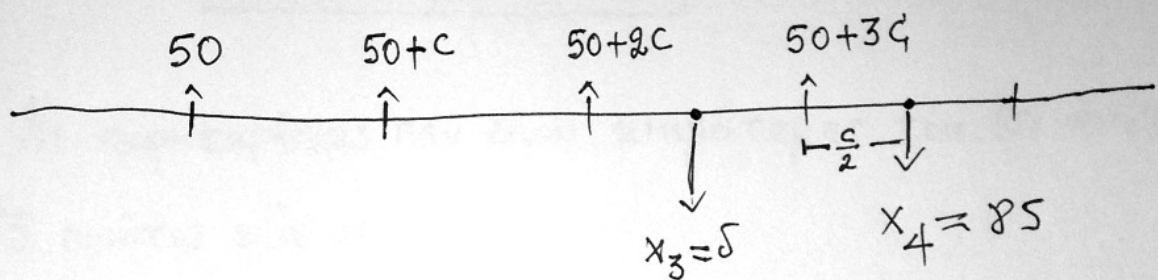 50 50+c 50+2c 50+3c
c/2
x₃=δ x₄=85